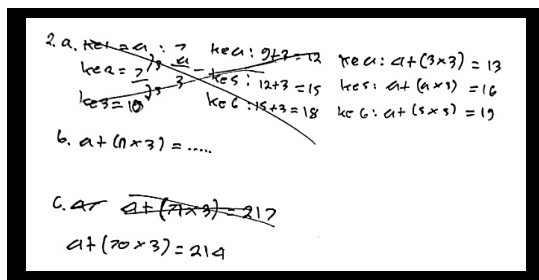 2. a. ke1 = a : 7 ke4 : 9+3 = 12 ke4 : 4+(3×3) = 13
ke2 = 7 ke5 : 12+3 = 15 ke5 : 4+(4×3) = 16
ke3 = 10 ke6 : 15+3 = 18 ke6 : 4+(5×3) = 19
b. 4+(n×3) = .....
c. 4+(71×3) = 217
4+(70×3) = 214